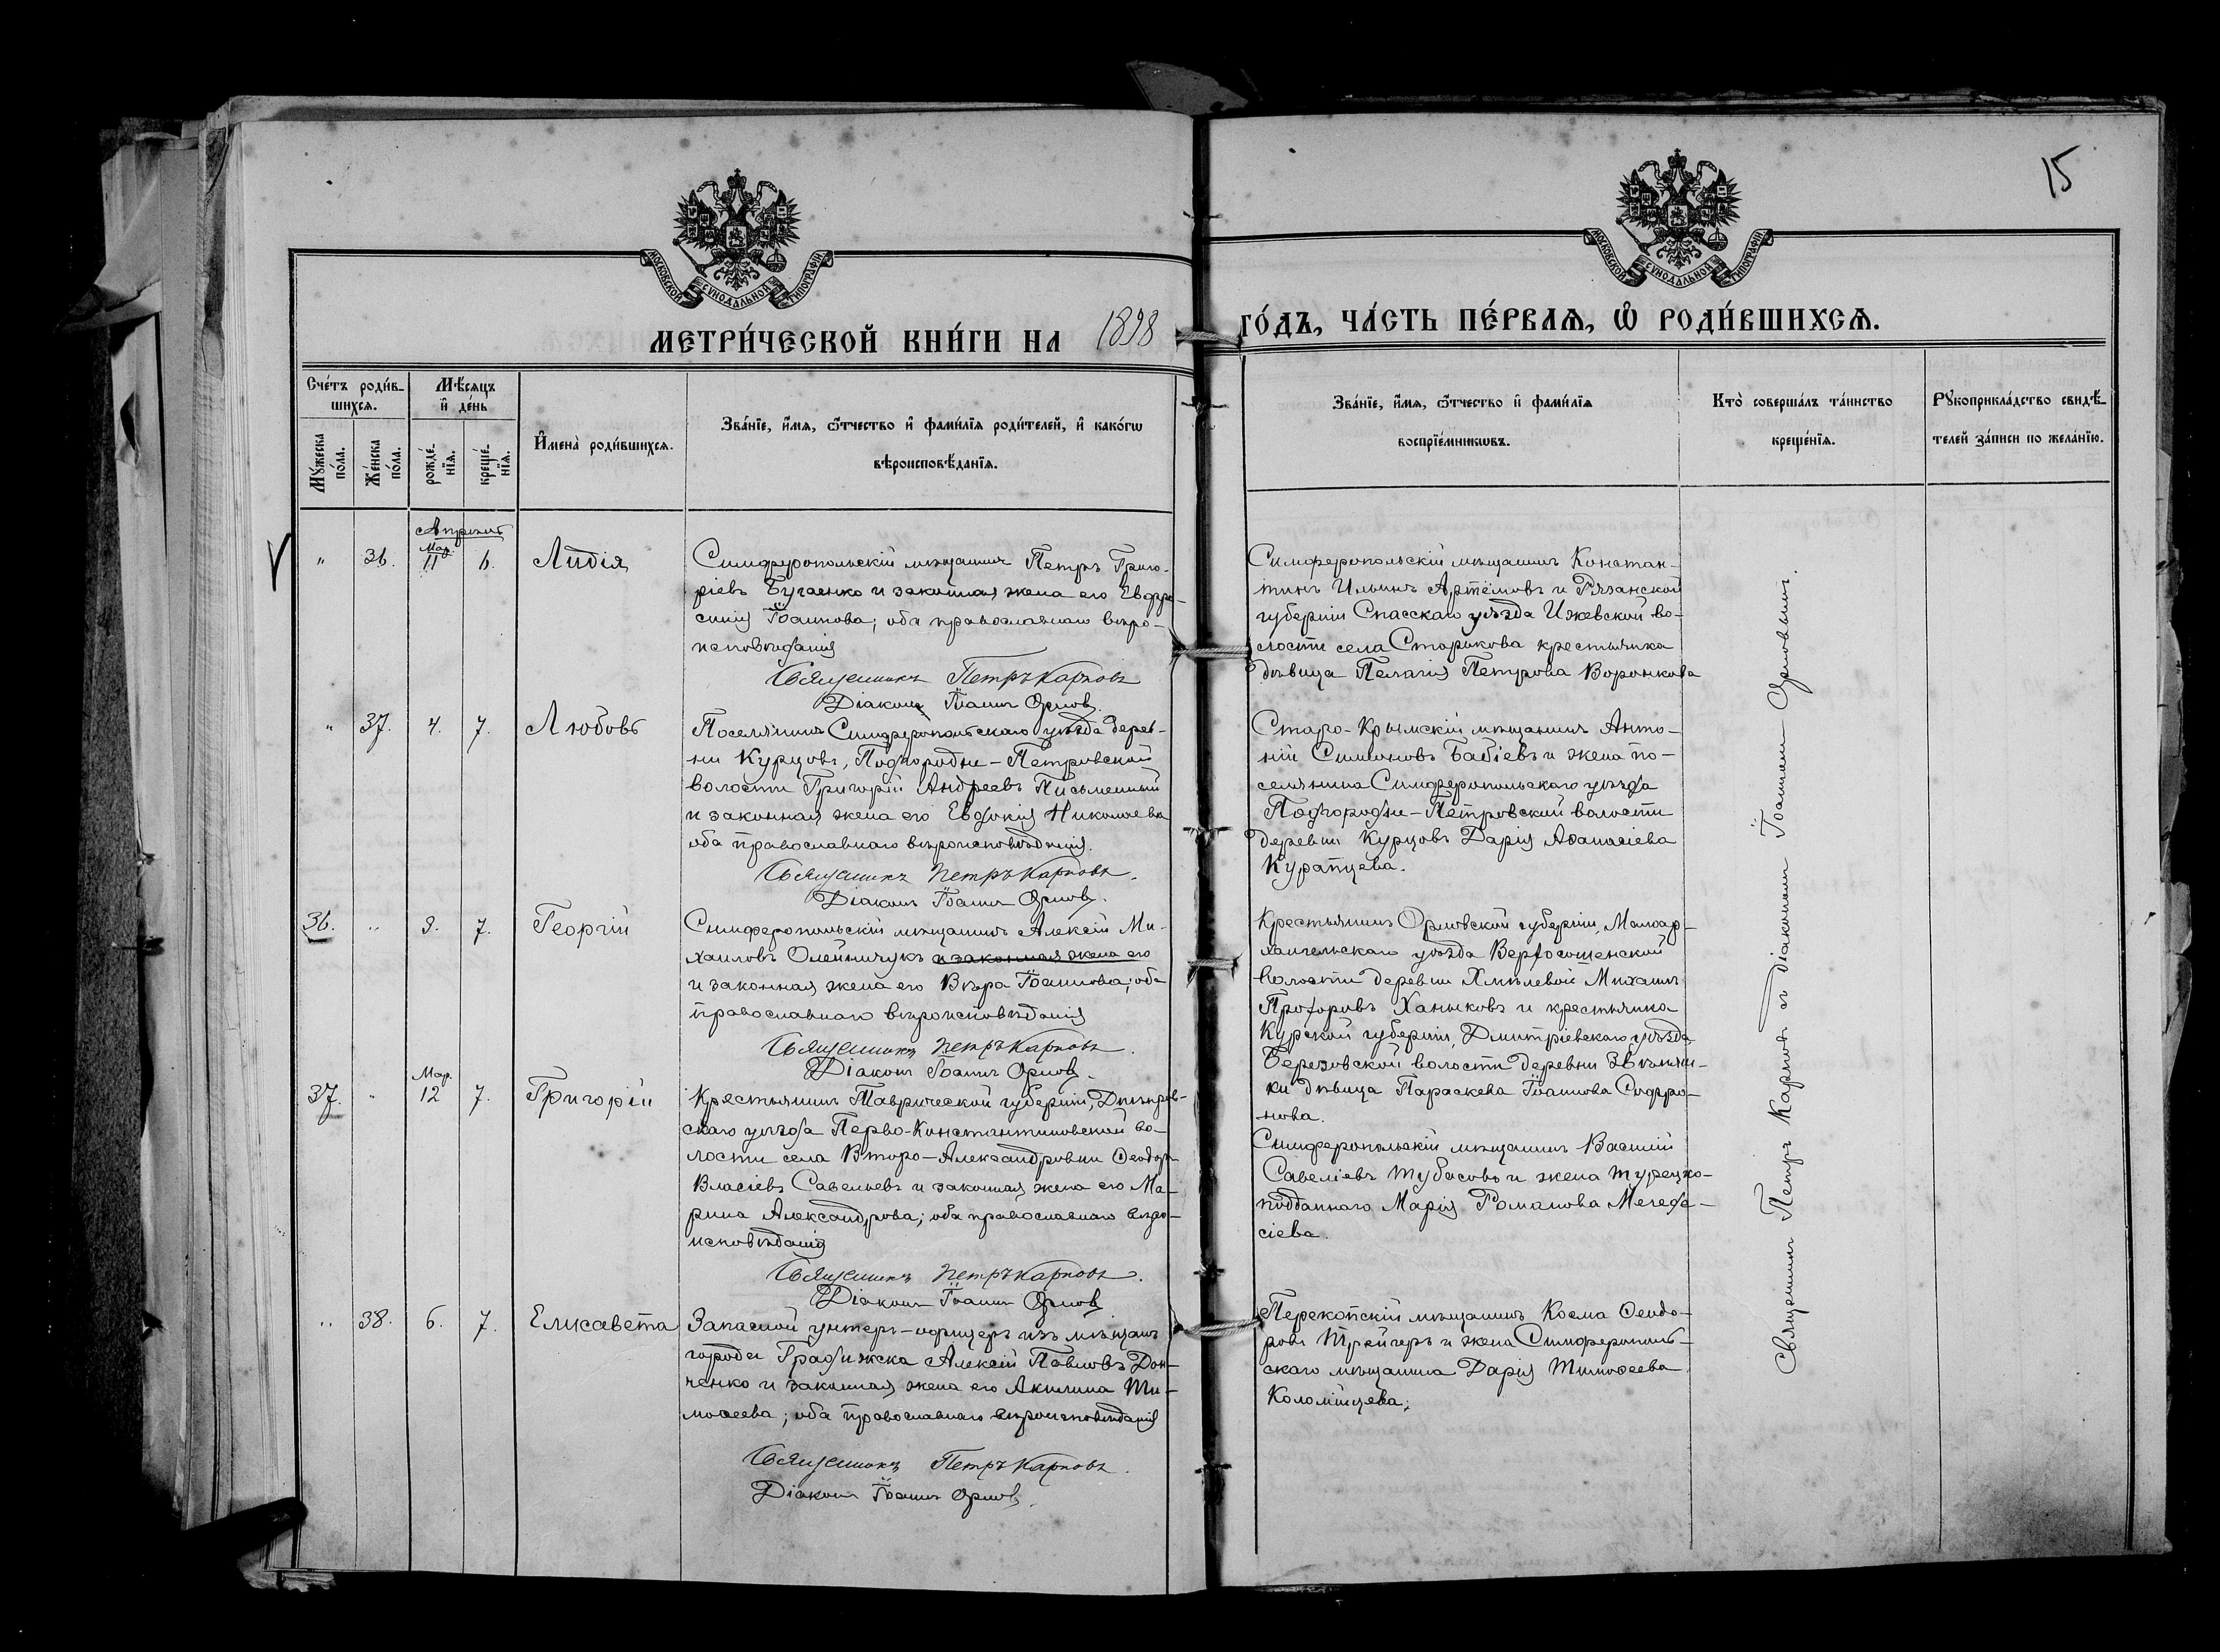 15
МОСКОВСКОЙ СѴНОДАЛЬНОЙ ТИПОГРАФІИ
МОСКОВСКОЙ СѴНОДАЛЬНОЙ ТИПОГРАФІИ
МЕТРИ́ЧЕСКОЙ КНИ́ГИ НА 1898 ГО́ДЪ, ЧА́СТЬ ПЕ́РВАѦ, Ѡ РОДИ́ВШИХСѦ.
Сче́тъ роди́в-
шихсѧ.
Мꙋ́жеска по́ла.
Же́нска по́ла.
Мѣ́сѧцъ
и҆ де́нь
рожде́-
нїѧ.
креще́-
нїѧ.
И҆мена̀ роди́вшихсѧ.
Зва́нїе, и҆́мѧ, ѻ҆́тчество и҆ фами́лїѧ роди́телей, и҆ како́гѡ
вѣроисповѣ́данїѧ.
Зва́нїе, и҆́мѧ, ѻ҆́тчество и҆ фами́лїѧ
воспрїе́мникѡвъ.
Кто̀ соверша́лъ та́инство
креще́нїѧ.
Рꙋкоприкла́дство свидѣ́-
телей за́писи по жела́нїю.
Апрѣль
" 36. Мар. 11 6. Лидія
Симферопольскій мѣщанинъ Петръ Григо-
ріевъ Бугаенко и законная жена его Евфро-
синія Іоаннова; оба православнаго вѣро-
исповѣданія
Священникъ Петръ Карповъ
Діаконъ Іоаннъ Орловъ.
Симферопольскій мѣщанинъ Констан-
тинъ Ильинъ Артёмовъ и Рязанской
губерніи Спасскаго уѣзда Ижевской во-
лости села Старикова крестьянка
дѣвица Пелагія Петрова Воронкова
" 37. 4. 7. Любовь
Поселянинъ Симферопольскаго уѣзда дерев-
ни Курцовъ, Подгородне-Петровской
волости Григорій Андреевъ Письменный
и законная жена его Евдокія Николаева
оба православнаго вѣроисповѣданія.
Священникъ Петръ Карповъ.
Діаконъ Іоаннъ Орловъ.
Старо-Крымскій мѣщанинъ Анто-
ній Симоновъ Бабіевъ и жена по-
селянина Симферопольскаго уѣзда
Подгородне-Петровской волости
деревни Курцовъ Дарія Аѳанасіева
Курапцева.
36. " 3. 7. Георгій
Симферопольскій мѣщанинъ Алексій Ми-
хаиловъ Олейничукъ и законная жена его
и законная жена его Вѣра Іоаннова; оба
православнаго вѣроисповѣданія
Священникъ Петръ Карповъ.
Діаконъ Іоаннъ Орловъ.
Крестьянинъ Орловской губерніи, Малоар-
хангельскаго уѣзда Верхососенской
волости деревни Хмѣлевой Михаилъ
Прохоровъ Ханыковъ и крестьянка
Курской губерніи, Дмитріевскаго уѣзда
Березовской волости деревни
ки дѣвица Параскева Іоаннова Софро-
нова.
37. " Мар. 12 7. Григорій
Крестьянинъ Таврической губерніи, Днѣпров-
скаго уѣзда Перво-Константиновской во-
лости села Второ-Александровки Ѳеодоръ
Власіевъ Савельевъ и законная жена его Ма-
рина Александрова; оба православнаго вѣро-
исповѣданія
Священникъ Петръ Карповъ.
Діаконъ Іоаннъ Орловъ
Симферопольскій мѣщанинъ Василій
Савеліевъ Тубасовъ и жена турецко-
подданнаго Марія Романова
сіева.
" 38. 6. 7. Елисавета
Запасной унтеръ-офицеръ изъ мѣщанъ
города Градижска Алексій Павловъ Дон-
ченко и законная жена его Акилина Ти-
моѳеева; оба православнаго вѣроисповѣданія
Священникъ Петръ Карповъ.
Діаконъ Іоаннъ Орловъ.
Перекопскій мѣщанинъ Косма Ѳеодо-
ровъ Трейгеръ и жена Симферополь-
скаго мѣщанина Дарія Тимоѳеева
Коломійцева.
Священникъ Петръ Карповъ съ діакономъ Іоанномъ Орловымъ.